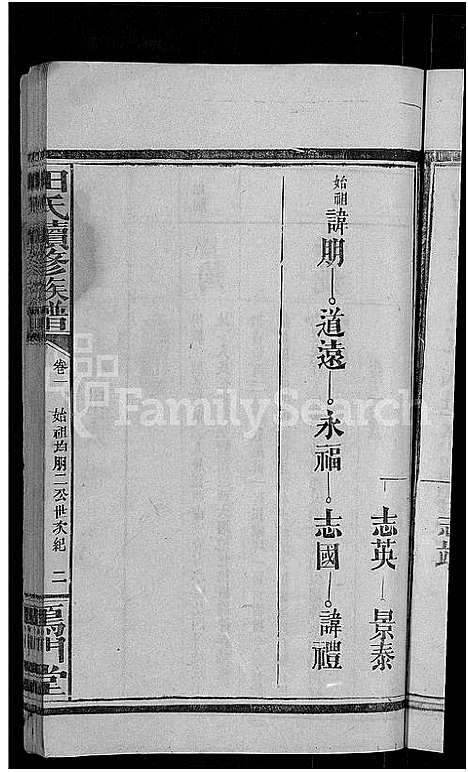 志英 景泰
始祖 諱朋 道遠 永福 志國 諱禮
田氏續修族譜
卷一 始祖均朋二公世次紀 二
堂
FamilySearch